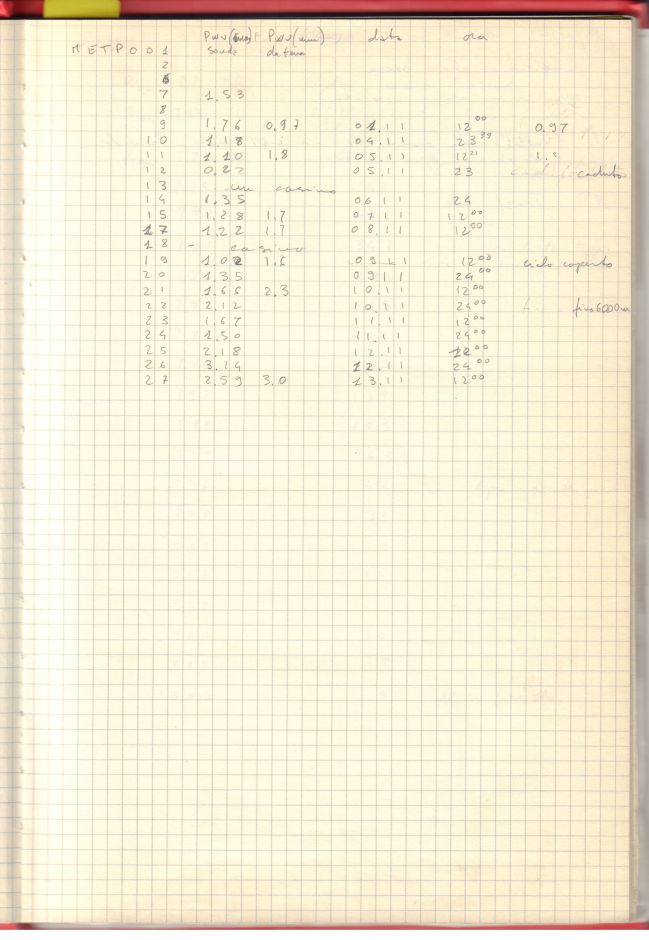 PWV(mm) PWV(mm) data ora
METP001 sonda da terra
2
6
7 1.53
8
9 1.76 0.97 04.11 12⁰⁰ 0.97
10 1.18 04.11 23³⁹
11 1.10 1.8 05.11 12²¹
12 05.11 23 caduto
13 - un casino
14 1.35 06 11 24
15 1.28 1.7 07 11 12⁰⁰
17 1.22 1.7 08.11 12⁰⁰
18 - casino
19 1.02 09 11 12⁰⁰ cielo coperto
20 1.35 09 11 24⁰⁰
21 1.66 2.3 10.11 12⁰⁰
22 2.12 10.11 24⁰⁰ fino 6000 m
23 1.67 11.11 12⁰⁰
24 1.50 11.11 24⁰⁰
25 2.18 12.11 12⁰⁰
26 3.14 12.11 24⁰⁰
27 2.59 3.0 13.11 12⁰⁰